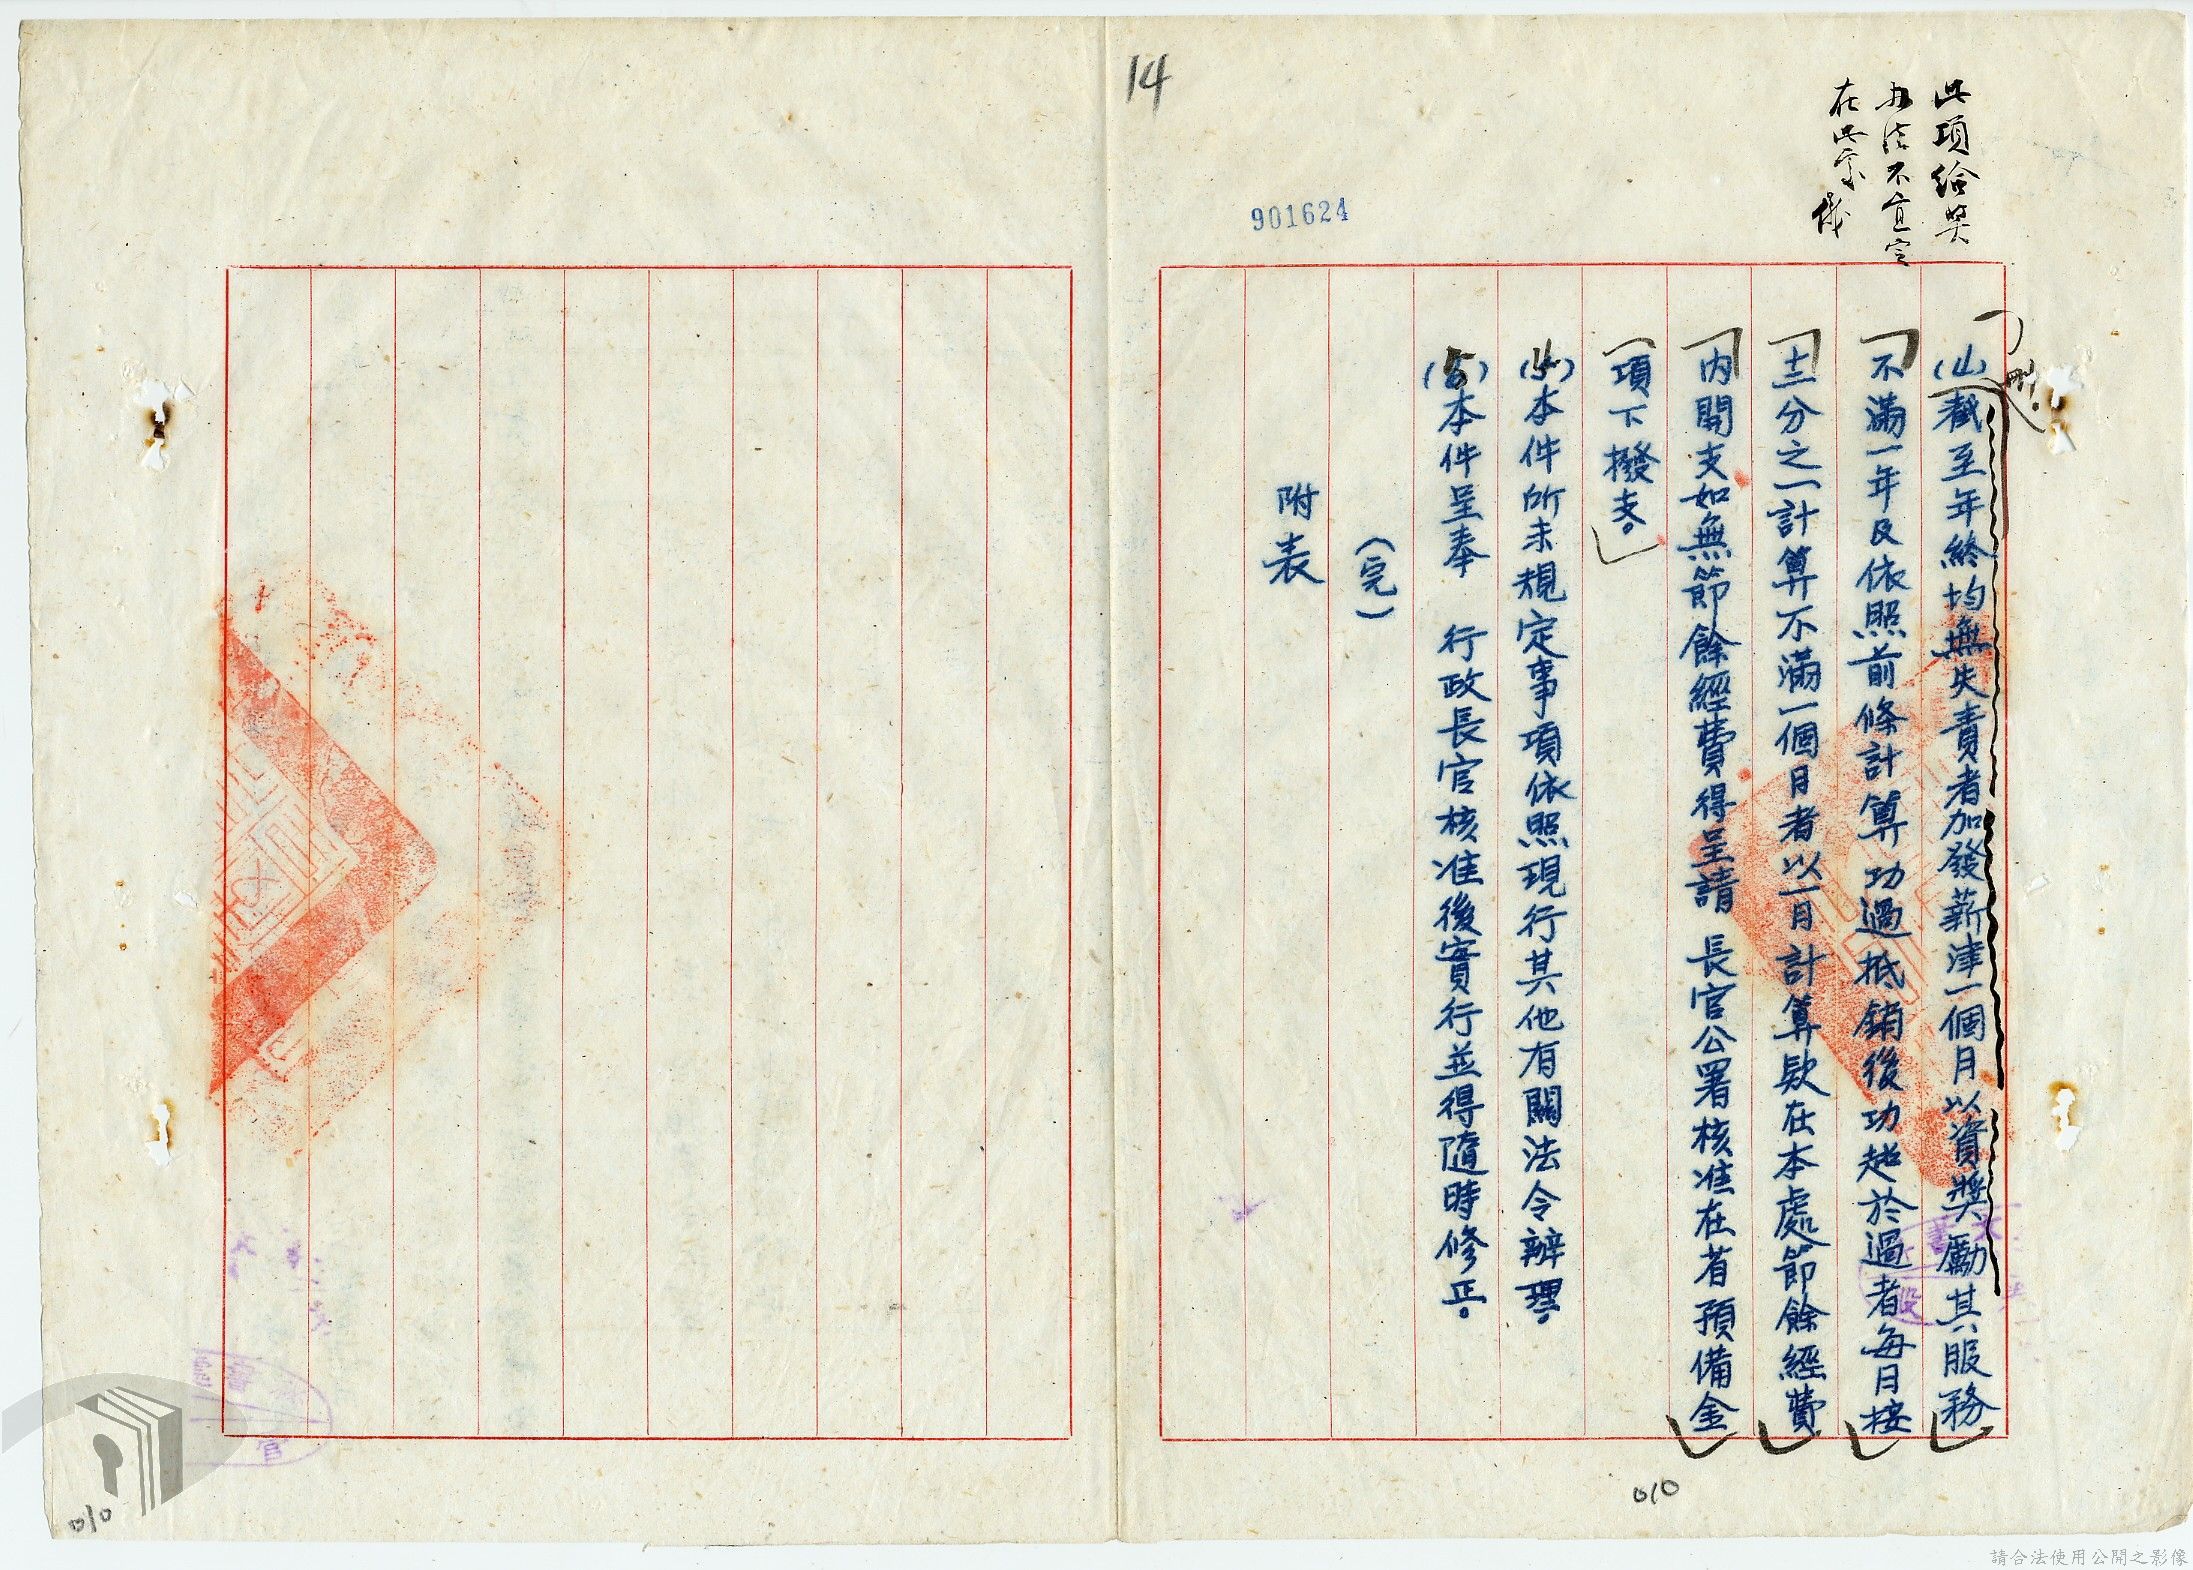 14
此項給獎
办法不宜定
在此案
901624
刪。
(山)截至年終均無失責者加發薪津一個月以資獎勵其服務
不滿一年及依照前條計算功過抵銷後功超於過者每月按
十二分之一計算不滿一個月者以一月計算欵在本處節餘經費
內開支如無節餘經費得呈請 長官公署核准在省預備金
項下撥支。
本件所未規定事項依照現行其他有關法令辦理。
(5)本件呈奉 行政長官核准後實行並得隨時修正。
(完)
附表
010
010
請合法使用公開之影像